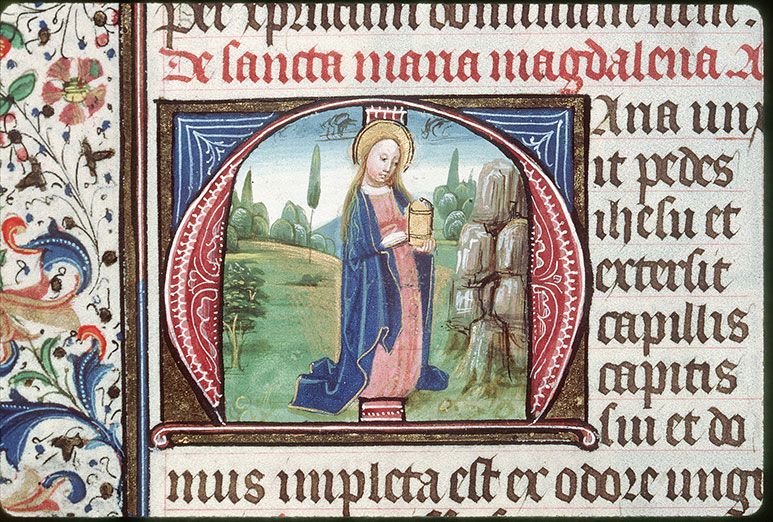 Per xpristum dominum
De sancta maria magdalena A
Maria unx
it pedes
ihesu et
extersit
capillis
capitis
sui et do
mus impleta est ex odore ungu